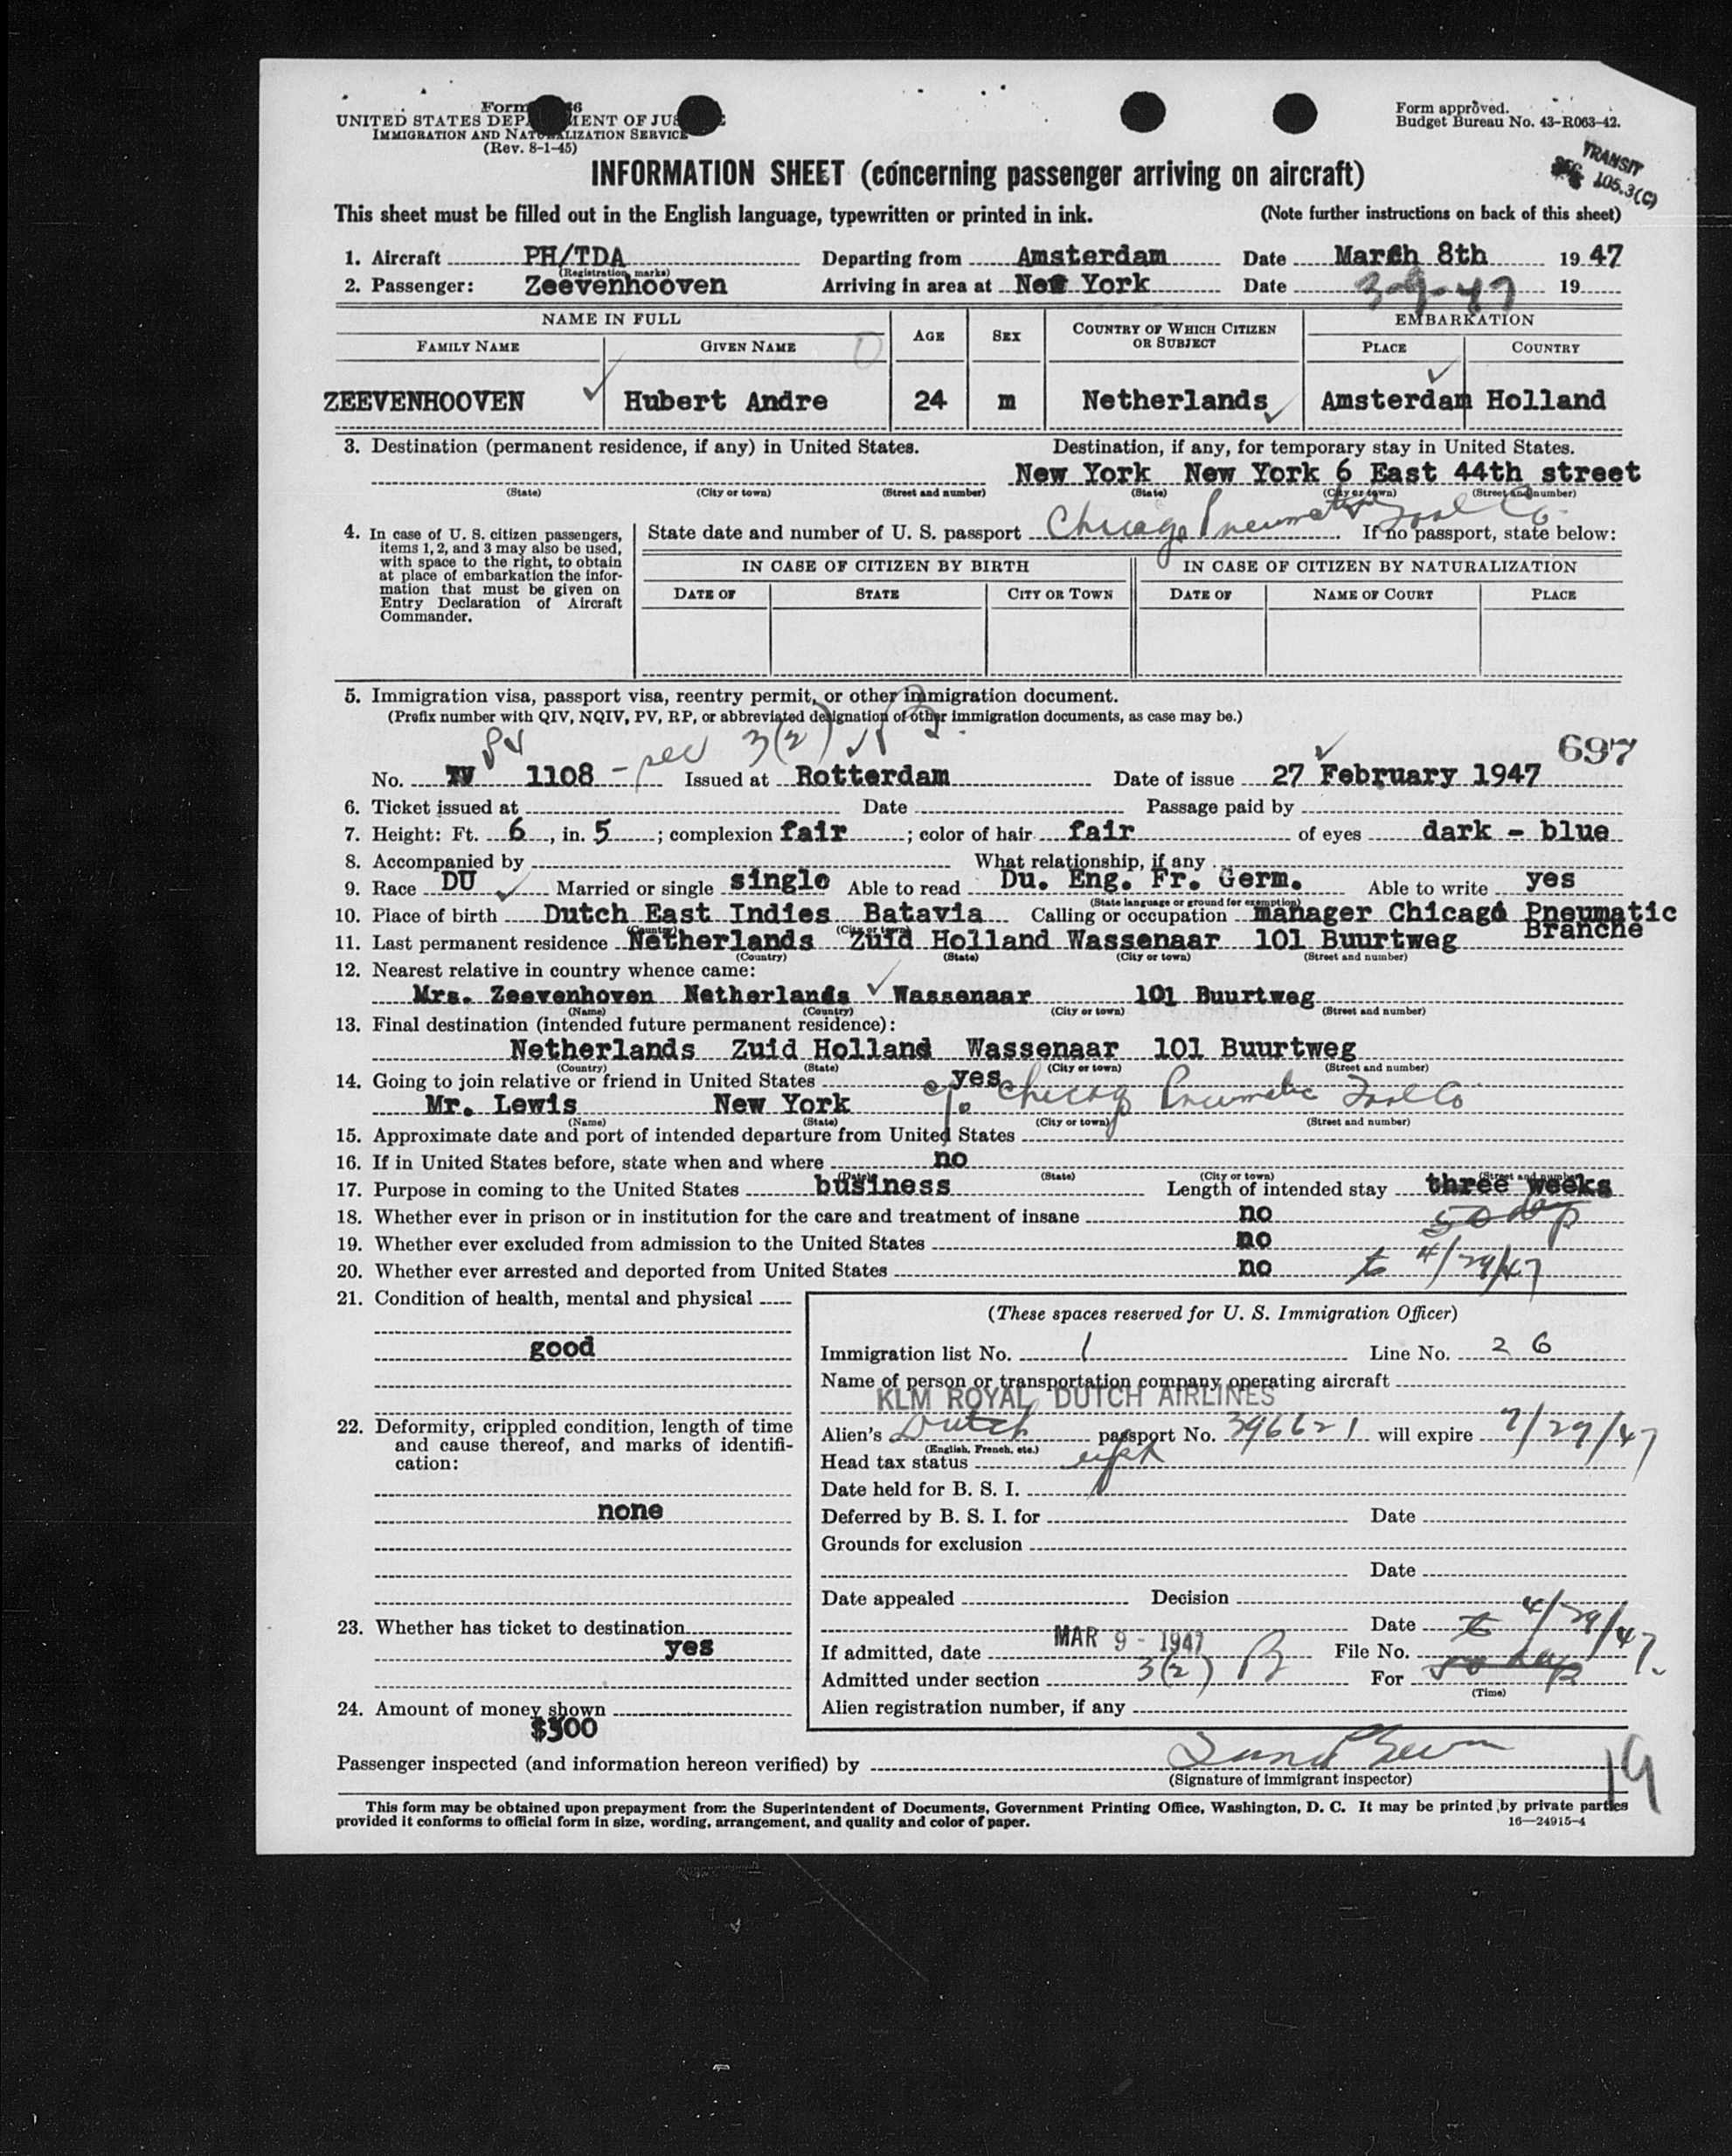 Form
UNITED STATES DEPARTMENT OF JUSTICE
IMMIGRATION AND NATURALIZATION SERVICE
(Rev. 8-1-45)
Form approved.
Budget Bureau No. 43-R063-42.
TRANSIT
SEC 105.3(C)
INFORMATION SHEET (concerning passenger arriving on aircraft)
This sheet must be filled out in the English language, typewritten or printed in ink. (Note further instructions on back of this sheet)
1. Aircraft PH/TDA Departing from Amsterdam Date March 8th 1947
(Registration marks)
2. Passenger: Zeevenhooven Arriving in area at New York Date 3-9-47 19
NAME IN FULL AGE SEX COUNTRY OF WHICH CITIZEN OR SUBJECT EMBARKATION
FAMILY NAME GIVEN NAME PLACE COUNTRY
ZEEVENHOOVEN Hubert Andre 24 m Netherlands Amsterdam Holland
3. Destination (permanent residence, if any) in United States. Destination, if any, for temporary stay in United States.
New York New York 6 East 44th street
(State) (City or town) (Street and number) (State) (City or town) (Street and number)
4. In case of U. S. citizen passengers, items 1, 2, and 3 may also be used, with space to the right, to obtain at place of embarkation the information that must be given on Entry Declaration of Aircraft Commander.
State date and number of U. S. passport Chicago Pneumatic Tool Co. If no passport, state below:
IN CASE OF CITIZEN BY BIRTH IN CASE OF CITIZEN BY NATURALIZATION
DATE OF STATE CITY OR TOWN DATE OF NAME OF COURT PLACE
5. Immigration visa, passport visa, reentry permit, or other immigration document.
(Prefix number with QIV, NQIV, PV, RP, or abbreviated designation of other immigration documents, as case may be.)
PV sec 3(2) B. 697
No. 1108 Issued at Rotterdam Date of issue 27 February 1947
6. Ticket issued at Date Passage paid by
7. Height: Ft. 6, in. 5; complexion fair; color of hair fair of eyes dark - blue
8. Accompanied by What relationship, if any
9. Race DU Married or single single Able to read Du. Eng. Fr. Germ. Able to write yes
(State language or ground for exemption)
10. Place of birth Dutch East Indies Batavia Calling or occupation manager Chicago Pneumatic
Branche
(Country) (City or town)
11. Last permanent residence Netherlands Zuid Holland Wassenaar 101 Buurtweg
(Country) (State) (City or town) (Street and number)
12. Nearest relative in country whence came:
Mrs. Zeevenhoven Netherlands Wassenaar 101 Buurtweg
(Name) (Country) (City or town) (Street and number)
13. Final destination (intended future permanent residence):
Netherlands Zuid Holland Wassenaar 101 Buurtweg
(Country) (State) (City or town) (Street and number)
14. Going to join relative or friend in United States yes
Mr. Lewis New York c/o Chicago Pneumatic Tool Co
(Name) (State) (City or town) (Street and number)
15. Approximate date and port of intended departure from United States
16. If in United States before, state when and where no
(Date) (State) (City or town) (Street and number)
17. Purpose in coming to the United States business Length of intended stay three weeks
18. Whether ever in prison or in institution for the care and treatment of insane no 50 days
19. Whether ever excluded from admission to the United States no
20. Whether ever arrested and deported from United States no to 4/29/47
21. Condition of health, mental and physical
good
22. Deformity, crippled condition, length of time and cause thereof, and marks of identification:
none
23. Whether has ticket to destination
yes
24. Amount of money shown
$300
(These spaces reserved for U. S. Immigration Officer)
Immigration list No. 1 Line No. 26
Name of person or transportation company operating aircraft
KLM ROYAL DUTCH AIRLINES
Alien's Dutch passport No. 396621 will expire 7/29/47
(English, French, etc.)
Head tax status
Date held for B. S. I.
Deferred by B. S. I. for Date
Grounds for exclusion
Date
Date appealed Decision
Date to 4/29/47.
If admitted, date MAR 9 - 1947 File No.
Admitted under section 3(2) B For 50 days
(Time)
Alien registration number, if any
Passenger inspected (and information hereon verified) by
(Signature of immigrant inspector)
19
This form may be obtained upon prepayment from the Superintendent of Documents, Government Printing Office, Washington, D. C. It may be printed by private parties
provided it conforms to official form in size, wording, arrangement, and quality and color of paper. 16—24915-4